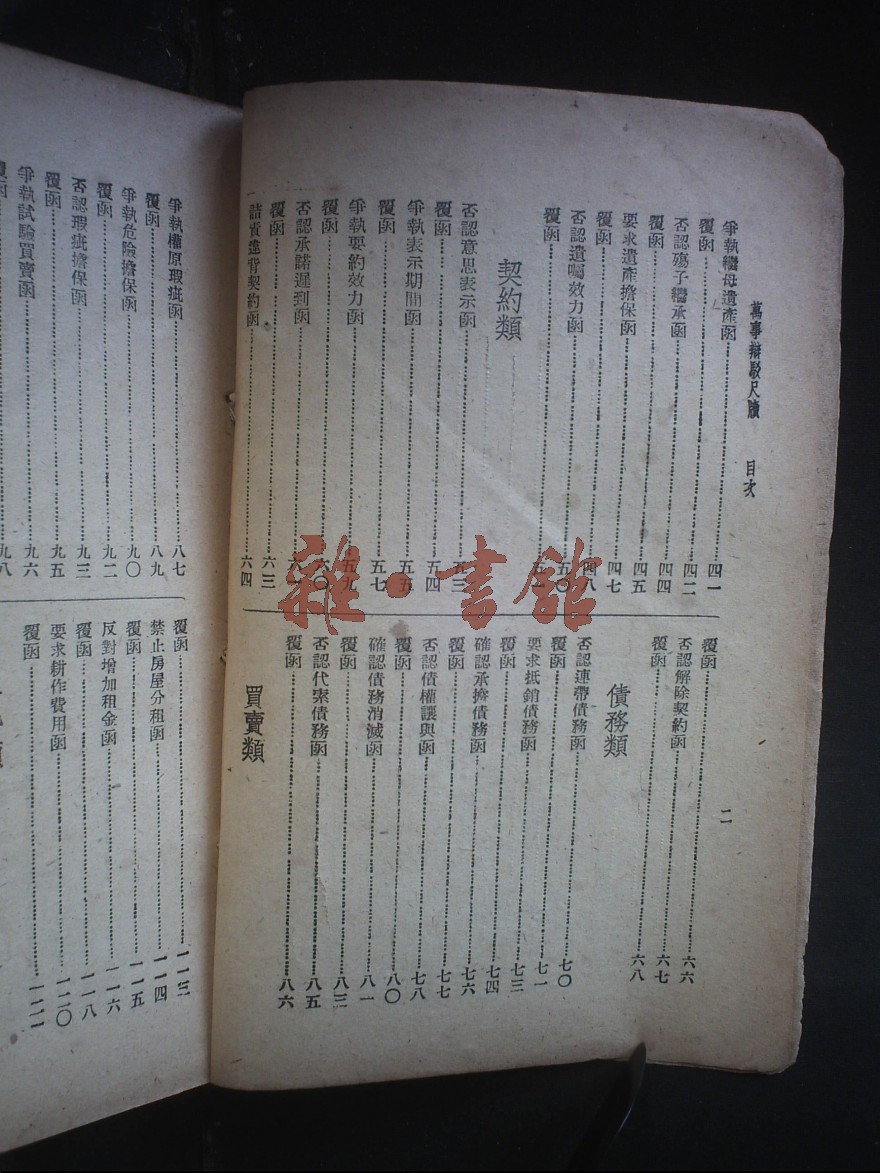 萬事辯駁尺牘 目次
二
爭執繼母遺產函……四一
覆函……四二
否認殤子繼承函……四四
覆函……四五
要求遺產擔保函……四七
覆函……四八
否認遺囑效力函……五〇
覆函……五一
契約類
否認意思表示函……五三
覆函……五四
爭執表示期間函……五五
覆函……五七
爭執要約效力函……五九
覆函……六〇
否認承諾遲到函……六一
覆函……六三
詰責違背契約函……六四
覆函……六六
否認解除契約函……六七
覆函……六八
債務類
否認連帶債務函……七〇
覆函……七一
要求抵銷債務函……七三
覆函……七四
確認承擔債務函……七六
覆函……七七
否認債權讓與函……七八
覆函……八〇
確認債務消滅函……八一
覆函……八三
否認代索債務函……八五
覆函……八六
買賣類
爭執權原瑕疵函……八七
覆函……八九
爭執危險擔保函……九〇
覆函……九二
否認瑕疵擔保函……九三
覆函……九五
爭執試驗買賣函……九六
覆函……九八
覆函……一一三
禁止房屋分租函……一一四
覆函……一一五
反對增加租金函……一一六
覆函……一一八
要求耕作費用函……一二〇
覆函……一二一
雜·書館